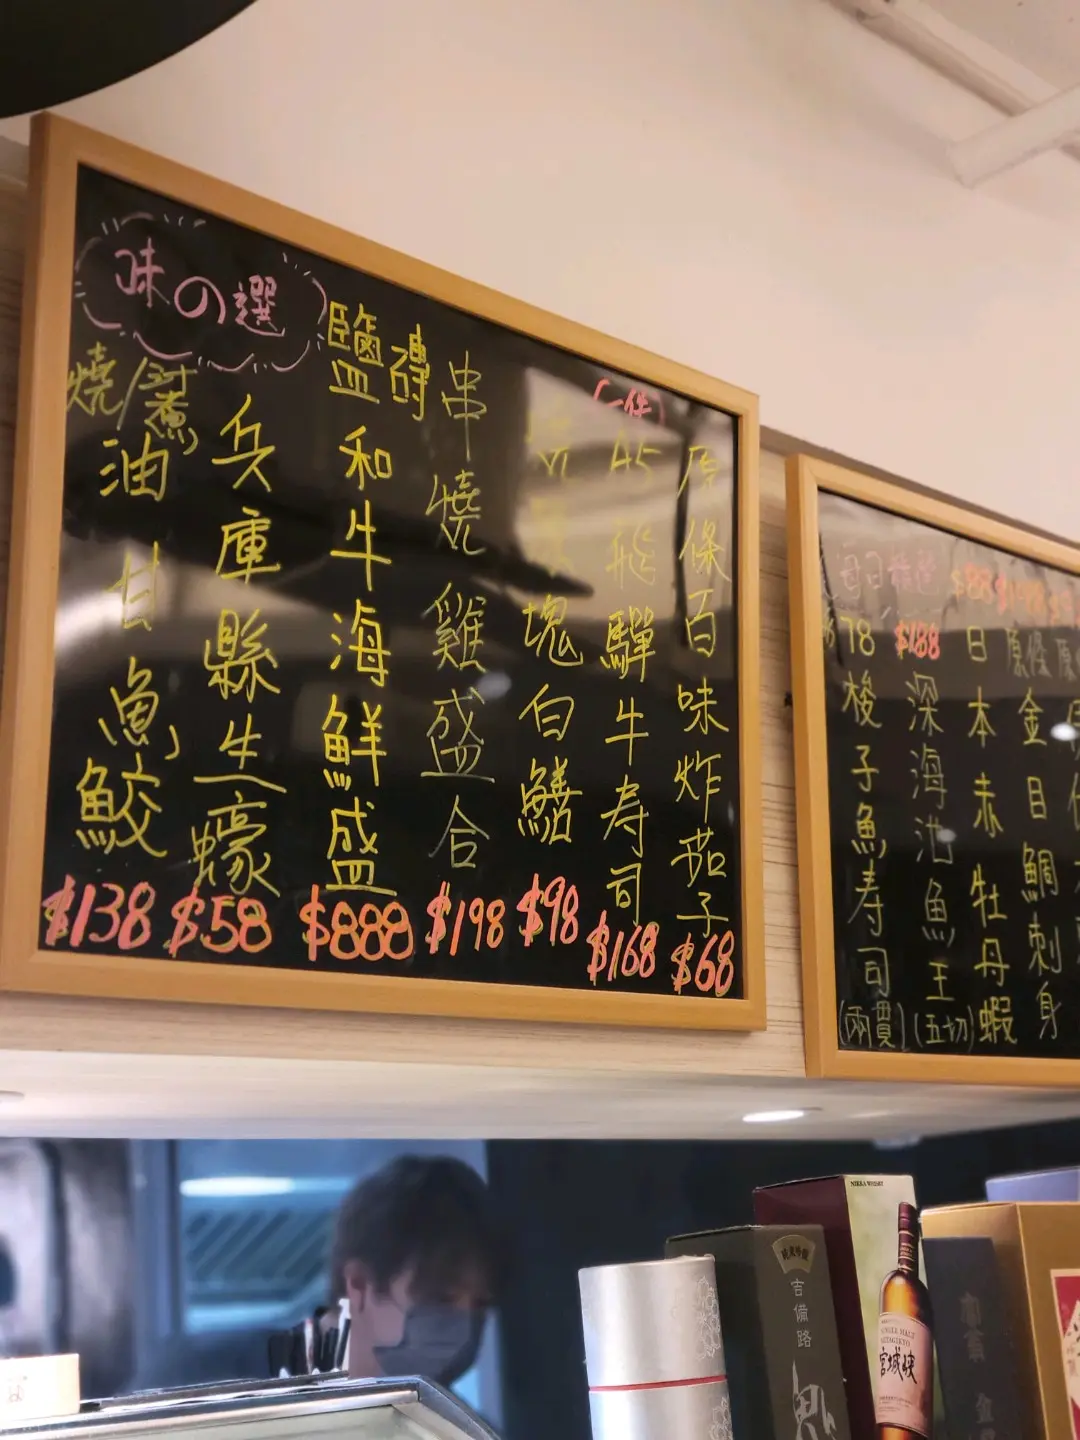 味の選
燒/煮
油甘魚鮫
$138
兵庫縣生蠔
$58
鹽磚和牛海鮮盛
$888
串燒雞盛合
$198
塊白鱔
$98
(一件)
A5飛驒牛寿司
$168
原條百味炸茄子
$68
每日
$78
梭子魚寿司
(兩貫)
$188
深海池魚王
(五切)
$88
日本赤牡丹蝦
原條金目鯛刺身
原
NIKKA WHISKY
純米吟醸
吉備路
SINGLE MALT
MIYAGIKYO
宮城峡